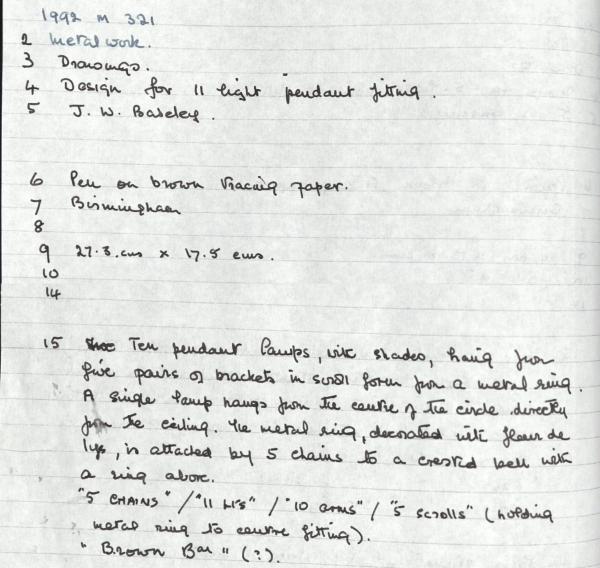 1992 M 321
2 Metalwork.
3 Drawings.
4 Design for 11 light pendant fitting.
5 J. W. Baseley.
6 Pen on brown tracing paper.
7 Birmingham
8
9 27.3.cms x 17.5 cms.
10
14
15 Ten pendant lamps, with shades, hang from
five pairs of brackets in scroll form from a metal ring.
A single lamp hangs from the centre of the circle directly
from the ceiling. The metal ring, decorated with fleur de
lys, is attached by 5 chains to a crested bell with
a ring above.
"5 CHAINS" / "11 Lts" / "10 arms" / "5 scrolls" (holding
metal ring to centre fitting).
"Brown Bar" (?).